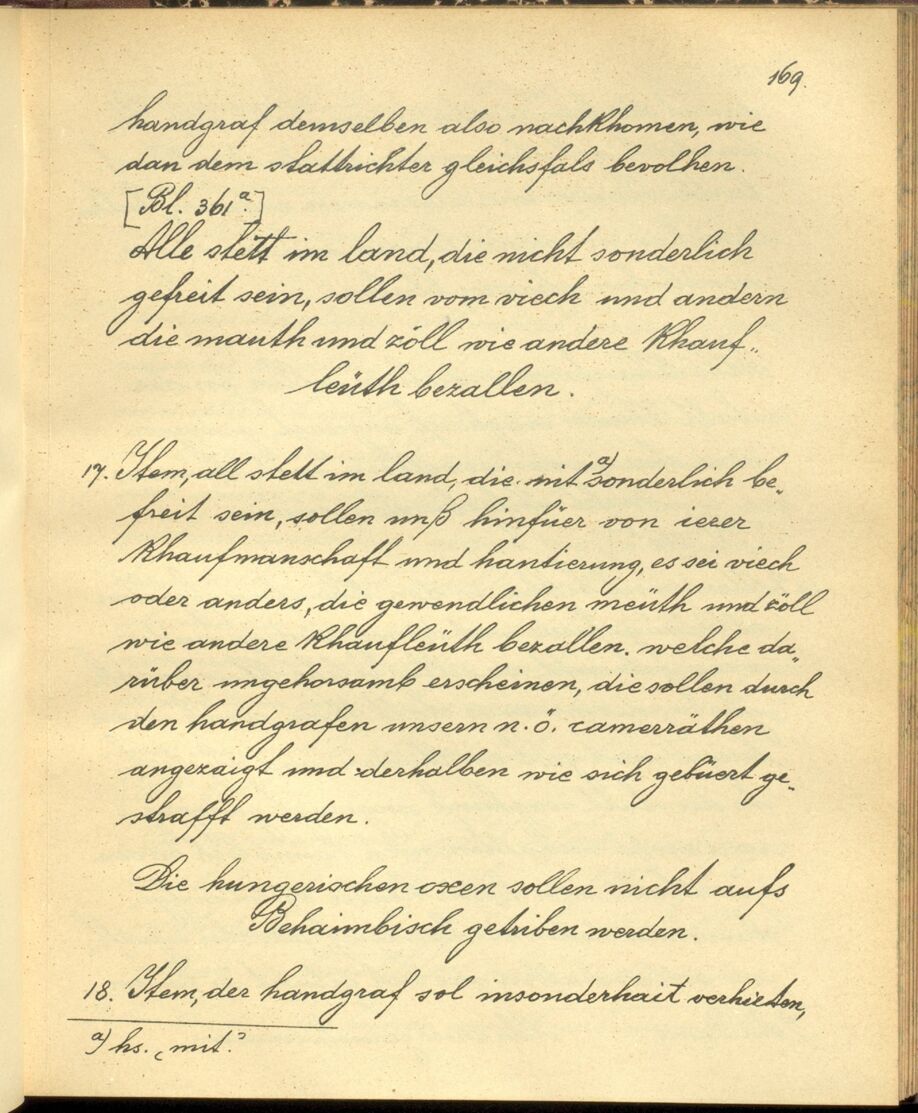 169.
handgraf demselben also nachkhomen, wie
dan dem stattrichter gleichsfals bevolhen.
[Bl. 361a.]
Alle stett im land, die nicht sonderlich
gefreit sein, sollen vom viech und andern
die mauth und zöll wie andere khauf„
leüth bezallen.
17. Item, all stett im land, die nit a) sonderlich be„
freit sein, sollen unß hinfüer von iezer
khaufmanschaft und hantierung, es sei viech
oder anders, die gewendlichen meüth und zöll
wie andere khaufleüth bezallen. welche da„
rüber ungehorsamb erscheinen, die sollen durch
den handgrafen unsern n. ö. camerräthen
angezaigt und derhalben wie sich gebüert ge„
strafft werden.
Die hungerischen oxen sollen nicht aufs
Behaimbisch getriben werden.
18. Item, der handgraf sol insonderhait verhieten,
a) hs. „mit."